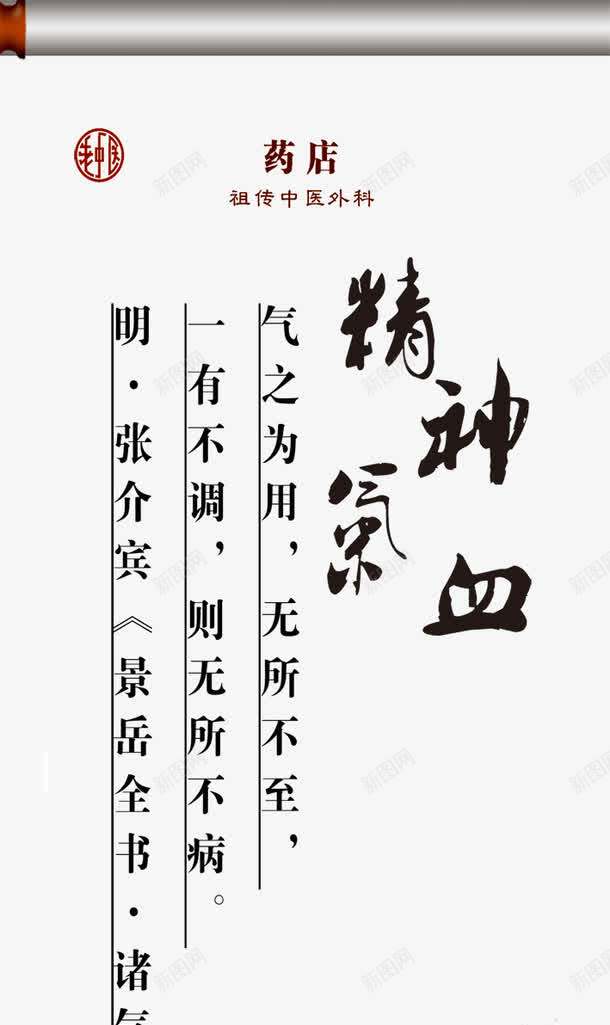 老中医
药店
祖传中医外科
精神
氣血
气之为用，无所不至，
一有不调，则无所不病。
明·张介宾《景岳全书·诸气
新图网